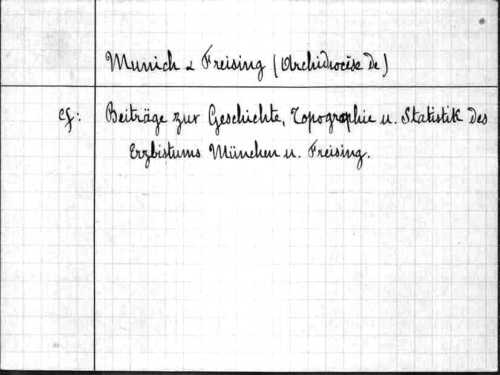 Munich & Freising (Archidiocèse de)
cf: Beiträge zur Geschichte, Topographie u. Statistik des
Erzbistums München u. Freising.